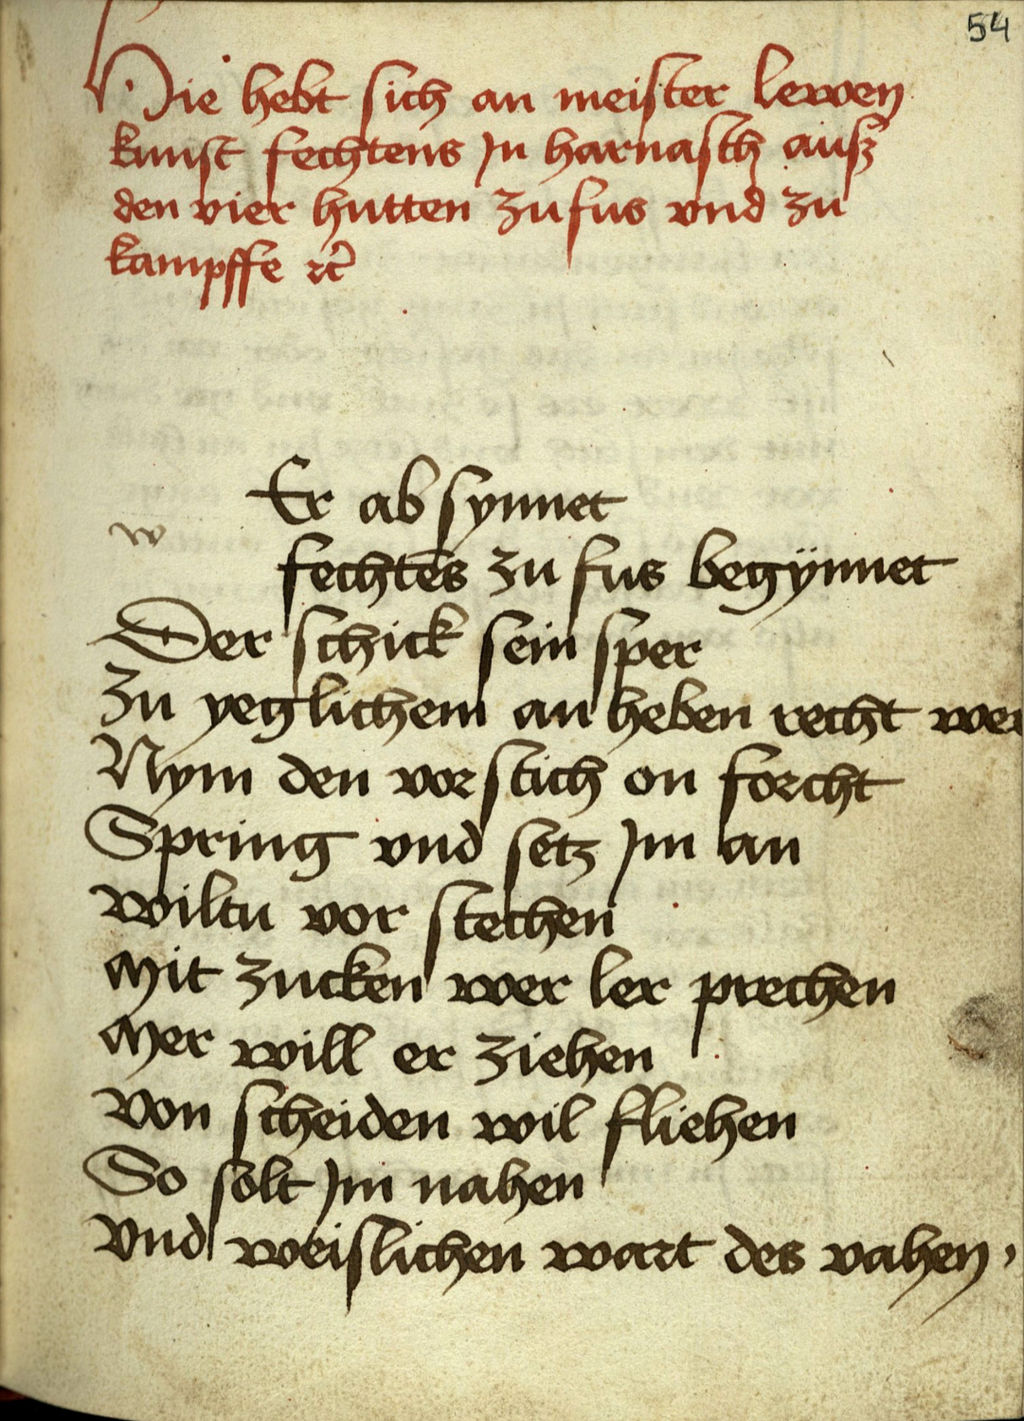 54
Hie hebt sich an meister lewen
kunst fechtens jn harnasch ausz
den vier hutten zu fus vnd zu
kampffe rc̄
Er ab synnet
w
fechte͂s zu fus begÿnnet
Der schick sein sper
Zu yeglichem an heben recht wer
Nym den vor stich on forcht
Spring vnd setz jm an
wiltu vor stechen
Mit zucken wer ler prechen
Mer will er ziehen
von scheiden wil fliehen
So solt jm nahen
vnd weislichen wart des vahen,